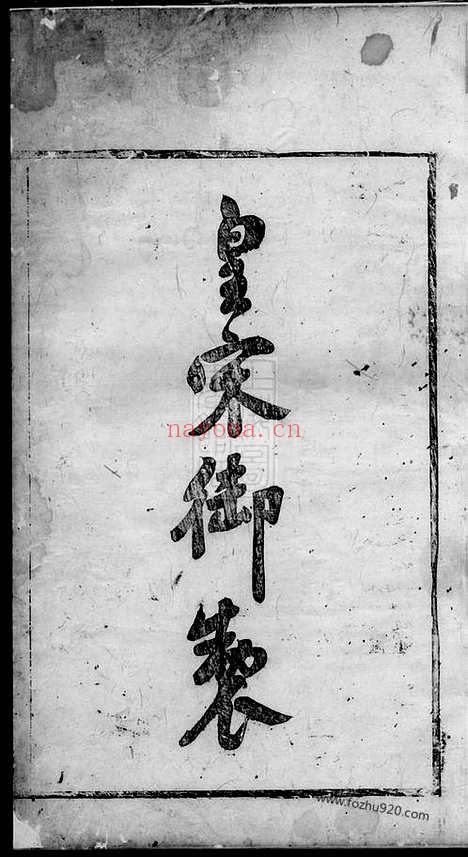 皇宋御製
nayona.cn
www.fozhu920.com